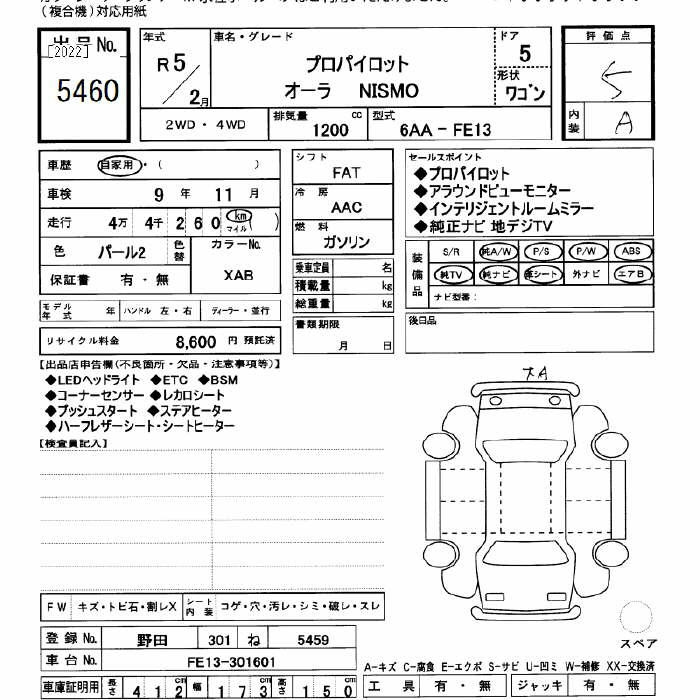 (複合機)対応用紙
出品No.
[2022]
5460
年式
R5/2月
車名・グレード
プロパイロット
オーラ NISMO
ドア
5
形状
ワゴン
評価点
5
内装
A
2WD・4WD
排気量
1200 cc
型式
6AA-FE13
車歴 自家用・( )
車検 9年 11月
走行 4万 4千 2 6 0 km マイル ( )
色 パール2 色替 カラーNo.
保証書 有・無 XAB
シフト
FAT
冷房
AAC
燃料
ガソリン
乗車定員 名
積載量 kg
総重量 kg
セールスポイント
◆プロパイロット
◆アラウンドビューモニター
◆インテリジェントルームミラー
◆純正ナビ 地デジTV
装備品
S/R 純A/W P/S P/W ABS
純TV 純ナビ 革シート 外ナビ エアB
ナビ型番:
モデル年式 年 ハンドル 左・右 ディーラー・並行
書類期限
月 日
後日品
リサイクル料金 8,600 円 預託済
【出品店申告欄(不良箇所・欠品・注意事項等)】
◆LEDヘッドライト ◆ETC ◆BSM
◆コーナーセンサー ◆レカロシート
◆プッシュスタート ◆ステアヒーター
◆ハーフレザーシート・シートヒーター
【検査員記入】
FW キズ・トビ石・割レX シート内装 コゲ・穴・汚レ・シミ・破レ・スレ
スペア
登録No. 野田 301 ね 5459
車台No. FE13-301601
車庫証明用 長さ 412 cm 幅 173 cm 高さ 150 cm
A-キズ C-腐食 E-エクボ S-サビ U-凹ミ W-補修 XX-交換済
工具 有・無 ジャッキ 有・無